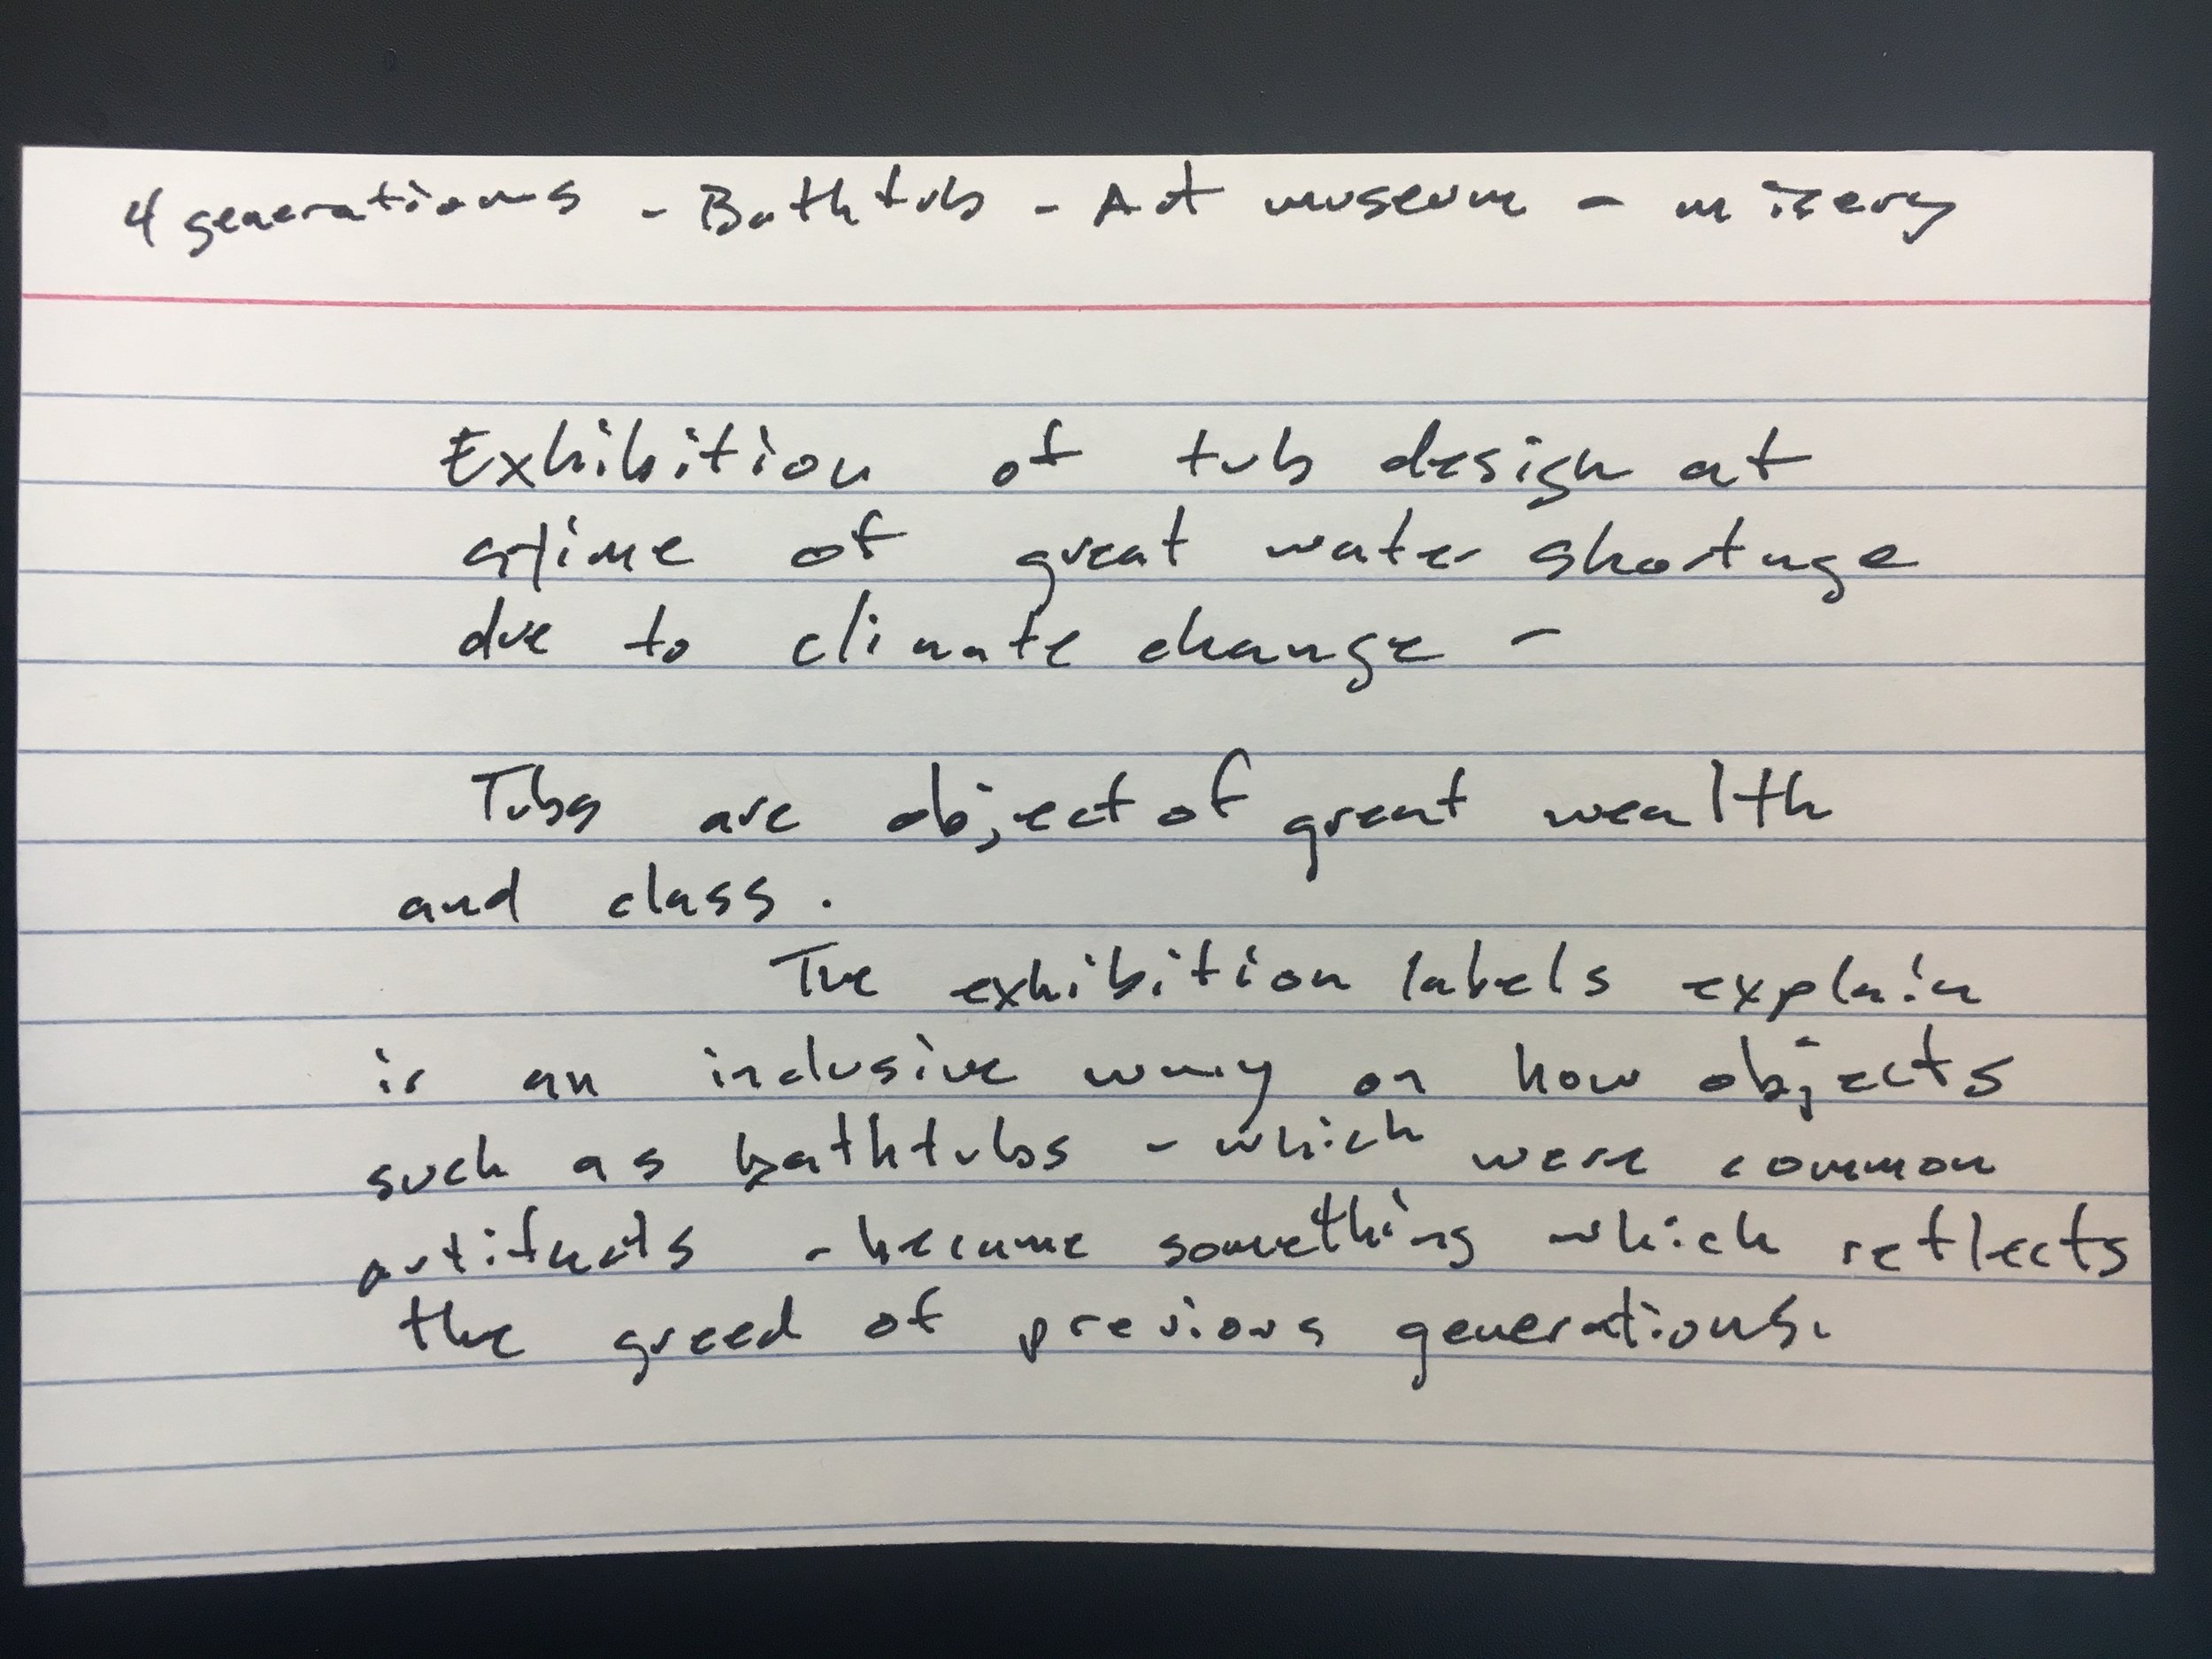 4 generations - Bathtub - Art museum - misery
Exhibition of tub design at
a time of great water shortage
due to climate change -
Tubs are object of great wealth
and class.
The exhibition labels explain
in an inclusive way on how objects
such as bathtubs - which were common
artifacts - become something which reflects
the greed of previous generations.